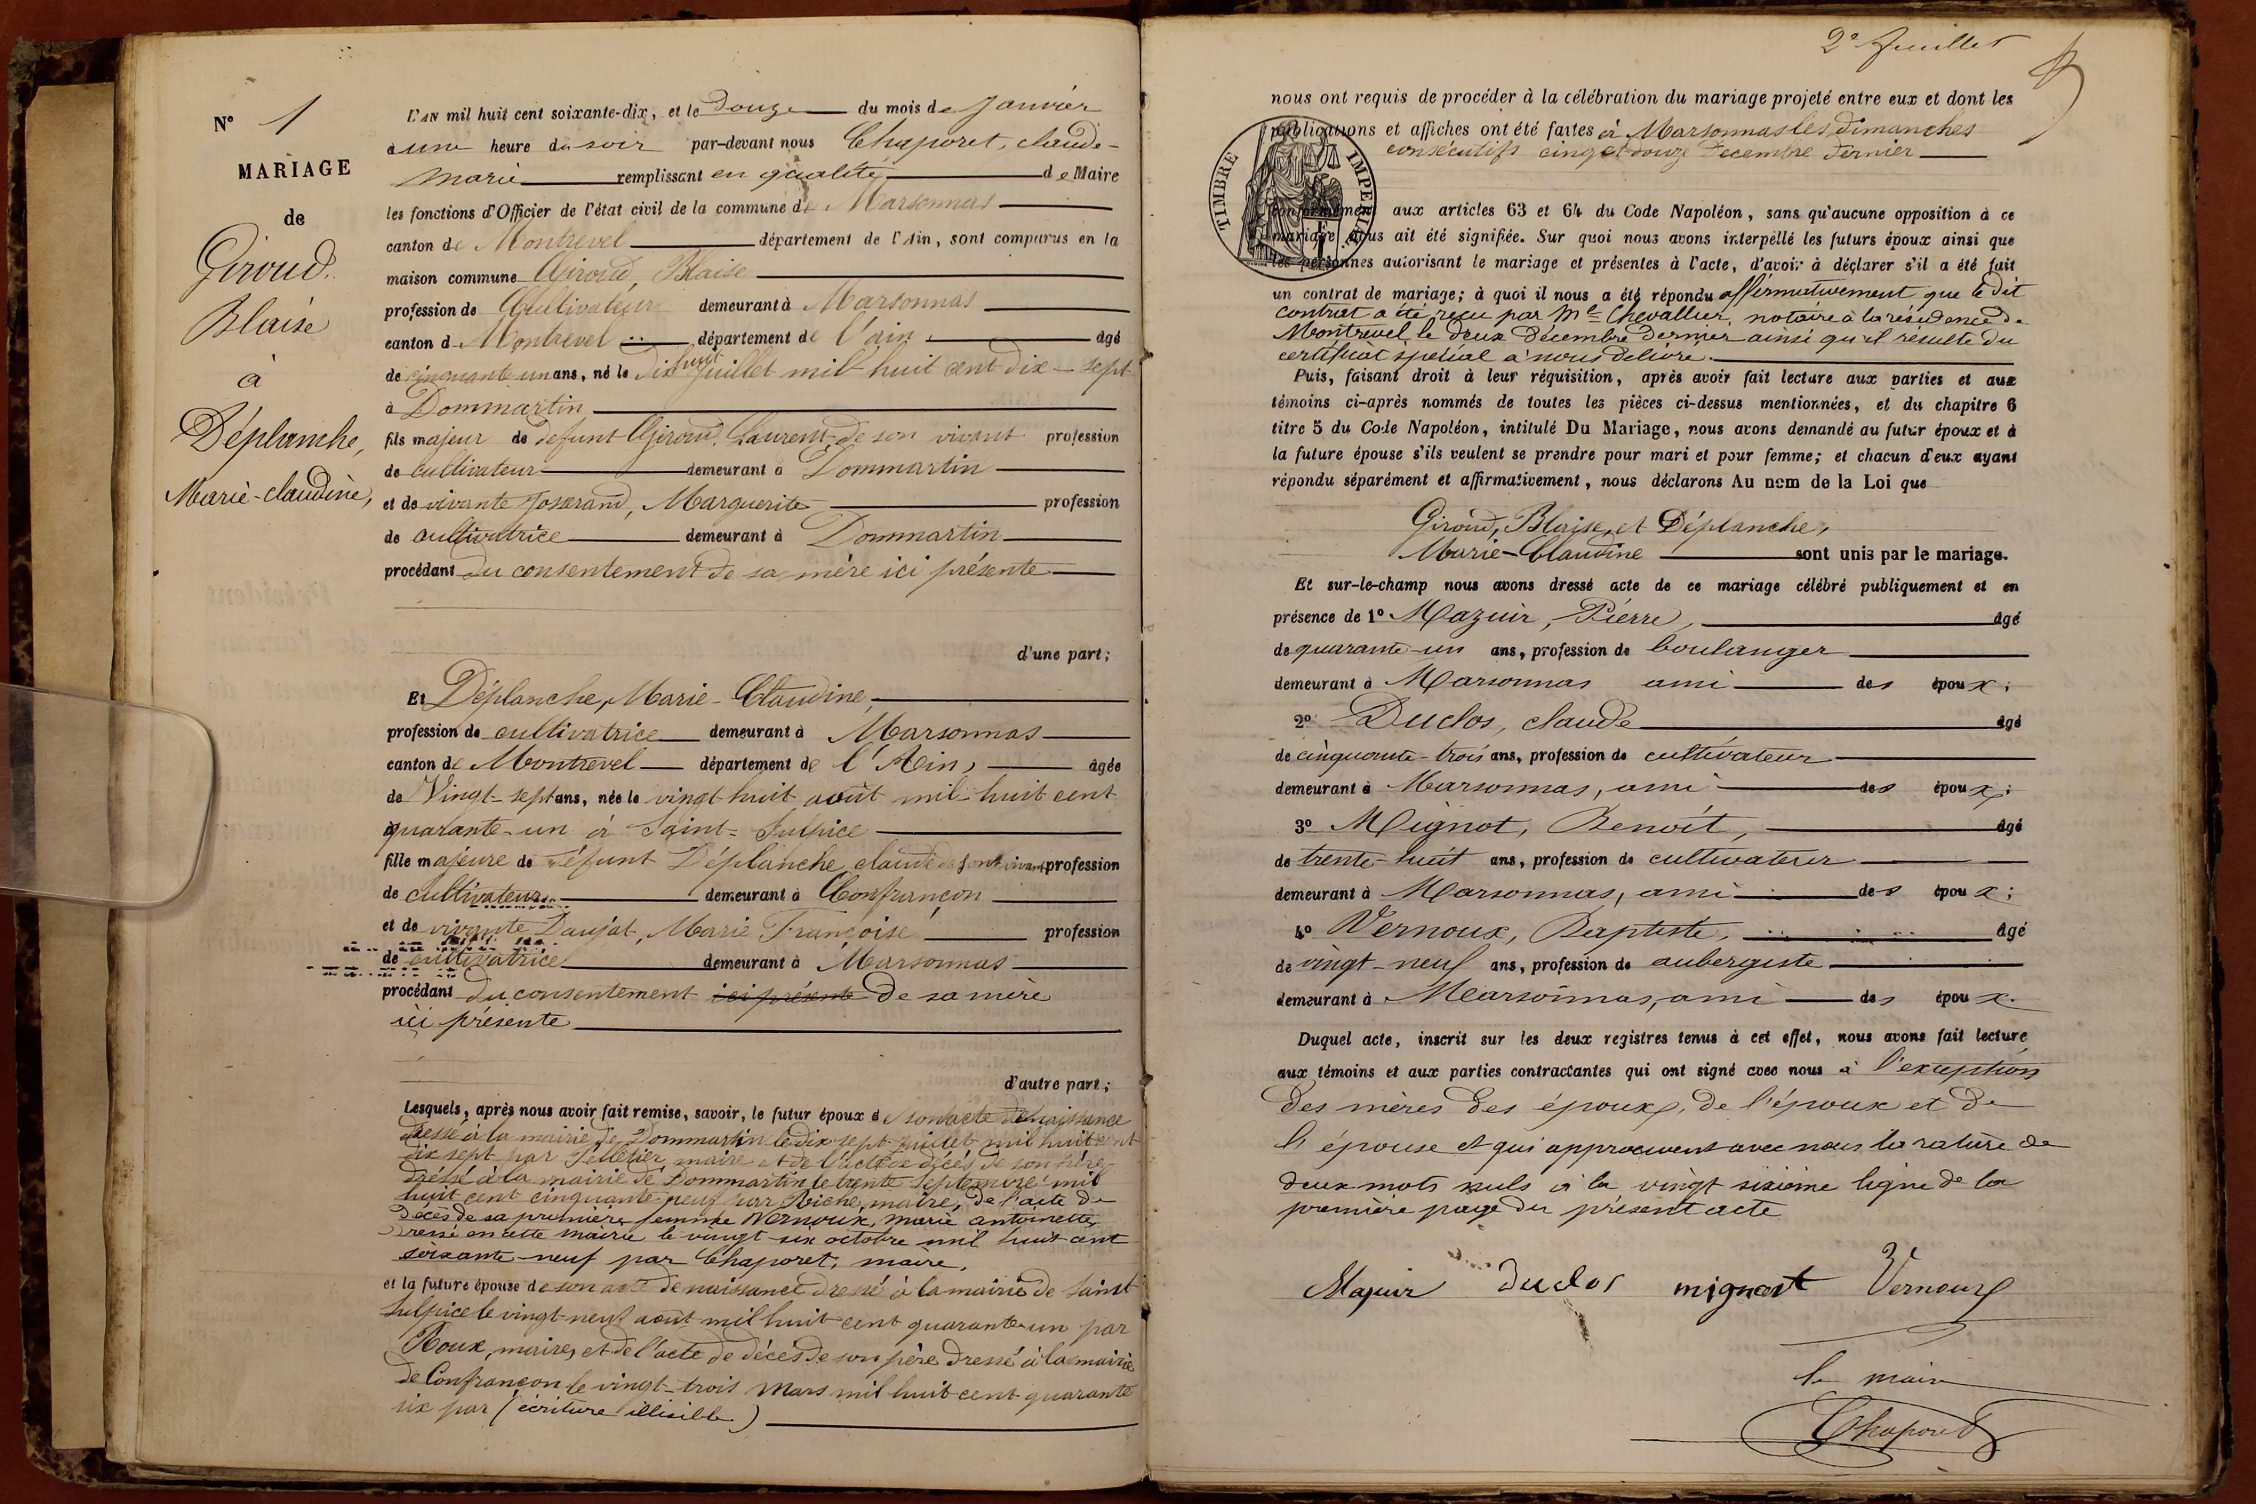 N° 1
MARIAGE
de
Giroud.
Blaise
à
Déplanche,
Marie-claudine,
L'AN mil huit cent soixante-dix, et le Douze du mois de Janvier
à une heure du soir par-devant nous Chaporet, claude-
Marie remplissant en qualité de Maire
les fonctions d'Officier de l'état civil de la commune de Marsonnas
canton de Montrevel département de l'Ain, sont comparus en la
maison commune Giroud, Blaise
profession de Cultivateur demeurant à Marsonnas
canton d Montrevel département de l'ain âgé
de cinquante un ans, né le Dix huit Juillet mil huit cent dix-sept
à Dommartin
fils majeur de defunt Giroud, Laurent de son vivant profession
de cultivateur demeurant à Dommartin
et de vivante Joserand, Marguerite profession
de cultivatrice demeurant à Dommartin
procédant du consentement de sa mère ici présente
d'une part;
Et Déplanche, Marie-Claudine,
profession de cultivatrice demeurant à Marsonnas
canton de Montrevel département de l'Ain, âgée
de Vingt-sept ans, née le vingt huit août mil huit cent
quarante-un à Saint-Sulpice
fille majeure de défunt Déplanche, claude de son vivant profession
de cultivateur demeurant à Confrançon
et de vivante Daujat, Marie Françoise profession
de cultivatrice demeurant à Marsonnas
procédant du consentement ici présente de sa mère
ici présente
d'autre part;
Lesquels, après nous avoir fait remise, savoir, le futur époux de son acte de naissance
dressé à la mairie de Dommartin le dix sept juillet mil huit cent
dix sept par Pelletier, maire et de l'acte de décès de son père
dressé à la mairie de Dommartin le trente Septembre mil
huit cent cinquante neuf par Riche, maire, de l'acte de
décès de sa première femme Vernoux, Marie antoinette,
dressé en cette mairie le vingt-six octobre mil huit cent
soixante-neuf par Chaporet, maire,
et la future épouse de son acte de naissance dressé à la mairie de Saint
Sulpice le vingt-neuf août mil huit cent quarante un par
Roux, maire, et de l'acte de décès de son père dressé à la mairie
de Confrançon le vingt-trois Mars mil huit cent quarante
six par (écriture illisible)
2e feuillet
nous ont requis de procéder à la célébration du mariage projeté entre eux et dont les
publications et affiches ont été faites à Marsonnas les dimanches
consécutifs cinq et douze Décembre dernier
TIMBRE IMPERIAL
conformément aux articles 63 et 64 du Code Napoléon, sans qu'aucune opposition à ce
mariage nous ait été signifiée. Sur quoi nous avons interpellé les futurs époux ainsi que
les personnes autorisant le mariage et présentes à l'acte, d'avoir à déclarer s'il a été fait
un contrat de mariage; à quoi il nous a été répondu affirmativement que le dit
contrat a été reçu par Me Chevallier, notaire à la résidence de
Montrevel, le deux Décembre dernier ainsi qu'il résulte du
certificat spécial à nous délivré.
Puis, faisant droit à leur réquisition, après avoir fait lecture aux parties et aux
témoins ci-après nommés de toutes les pièces ci-dessus mentionnées, et du chapitre 6
titre 5 du Code Napoléon, intitulé Du Mariage, nous avons demandé au futur époux et à
la future épouse s'ils veulent se prendre pour mari et pour femme; et chacun d'eux ayant
répondu séparément et affirmativement, nous déclarons Au nom de la Loi que
Giroud, Blaise, et Déplanche,
Marie-Claudine sont unis par le mariage.
Et sur-le-champ nous avons dressé acte de ce mariage célébré publiquement et en
présence de 1° Mazuir, Pierre, âgé
de quarante-un ans, profession de boulanger
demeurant à Marsonnas ami des époux;
2° Duclos, claude âgé
de cinquante-trois ans, profession de cultivateur
demeurant à Marsonnas, ami des époux;
3° Mignot, Benoit, âgé
de trente-huit ans, profession de cultivateur
demeurant à Marsonnas, ami des époux;
4° Vernoux, Baptiste, âgé
de vingt-neuf ans, profession de aubergiste
demeurant à Marsonnas, ami des époux.
Duquel acte, inscrit sur les deux registres tenus à cet effet, nous avons fait lecture
aux témoins et aux parties contractantes qui ont signé avec nous à l'exception
des mères des époux, de l'époux et de
l'épouse et qui approuvent avec nous la rature de
deux mots nuls à la vingt sixième ligne de la
première page du présent acte
Mazuir Duclos mignot Vernoux
le maire
Chaporet